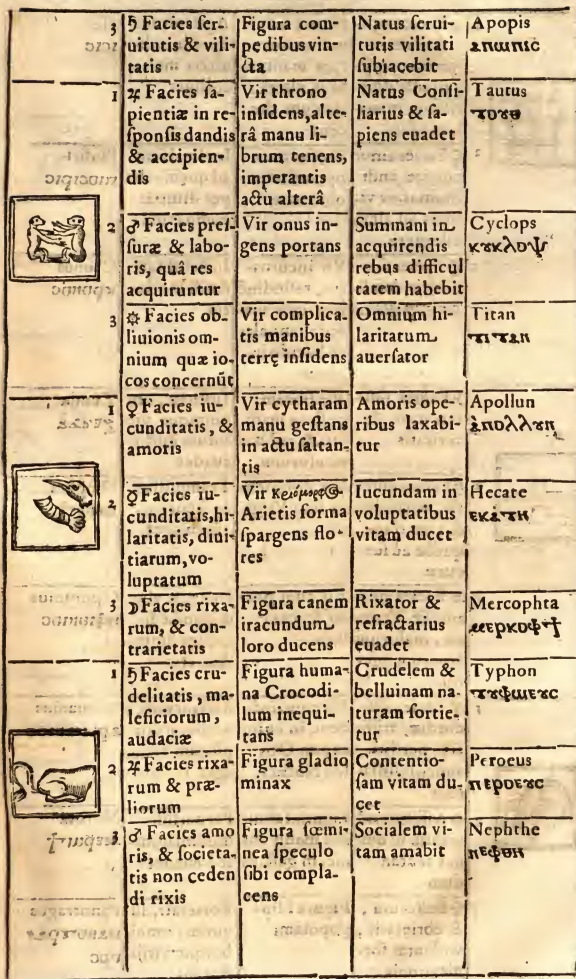 3 ♄ Facies ser-
uitutis & vili-
tatis
Figura com-
pedibus vin-
cta
Natus serui-
tutis vilitati
subiacebit
Apopis
ⲁⲡⲱⲡⲓⲥ
1 ♃ Facies sa-
pientiæ in re-
sponsis dandis
& accipien-
dis
Vir throno
insidens, alte-
râ manu li-
brum tenens,
imperantis
actu alterâ
Natus Consi-
liarius & sa-
piens euadet
Tautus
ⲧⲟⲩⲑ
2 ♂ Facies pres-
suræ & labo-
ris, quâ res
acquiruntur
Vir onus in-
gens portans
Summam in
acquirendis
rebus difficul
tatem habebit
Cyclops
ⲕⲩⲕⲗⲟⲯ
3 ☼ Facies ob-
liuionis om-
nium quæ io-
cos concernũt
Vir complica-
tis manibus
terrę insidens
Omnium hi-
laritatum
auersator
Titan
ⲧⲓⲧⲁⲛ
1 ♀ Facies iu-
cunditatis, &
amoris
Vir cytharam
manu gestans
in actu saltan-
tis
Amoris ope-
ribus laxabi-
tur
Apollun
ⲁⲡⲟⲗⲗⲩⲛ
2 ☿ Facies iu-
cunditatis, hi-
laritatis, diui-
tiarum, vo-
luptatum
Vir Κριόμορφος
Arietis forma
spargens flo-
res
Iucundam in
voluptatibus
vitam ducet
Hecate
ⲉⲕⲁⲧⲏ
3 ☽ Facies rixa-
rum, & con-
trarietatis
Figura canem
iracundum
loro ducens
Rixator &
refractarius
euadet
Mercophta
ⲙⲉⲣⲕⲟⲫϯ
1 ♄ Facies cru-
delitatis, ma-
leficiorum,
audaciæ
Figura huma-
na Crocodi-
lum inequi-
tans
Crudelem &
belluinam na-
turam sortie-
tur
Typhon
ⲧⲩⲫⲱⲉⲩⲥ
2 ♃ Facies rixa-
rum & præ-
liorum
Figura gladio
minax
Contentio-
sam vitam du-
cet
Peroeus
ⲡⲉⲣⲟⲉⲩⲥ
3 ♂ Facies amo
ris, & societa-
tis non ceden
di rixis
Figura fœmi-
nea speculo
sibi compla-
cens
Socialem vi-
tam amabit
Nephthe
ⲛⲉⲫⲑⲏ